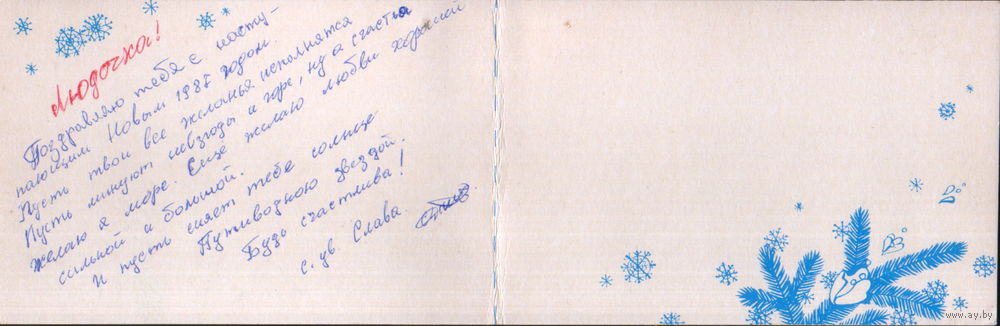 Людочка!
Поздравляю тебя с насту-
пающим Новым 1987 годом.
Пусть твои все желанья исполнятся
Пусть минуют невзгоды и горе, ну а счастья
желаю я море. Еще желаю любви хорошей
сильной и большой.
И пусть сияет тебе солнце
Путиводною звездой.
Будь счастлива!
с. ув. Слава.
www.ay.by